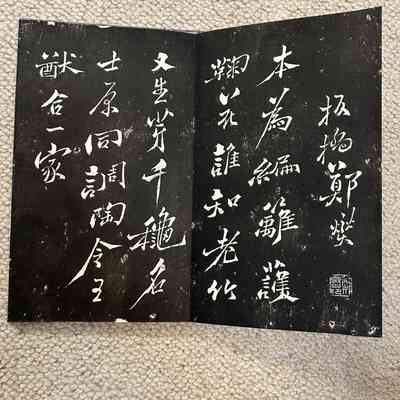 板橋鄭燮
本為編籬護
鞠花誰知老竹
又生芽千龝名
士原同調陶令王
猷合一家